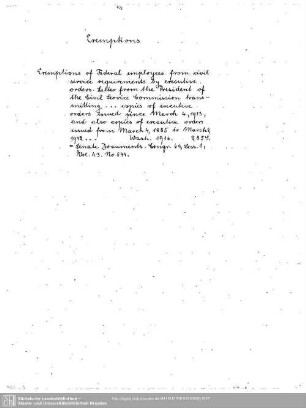 Exemptions
Exemptions of Federal employees from civil
service requirements by executive
orders. Letter from the President of
the Civil Service Commission trans-
mitting ... copies of executive
orders issued since March 4, 1913,
and also copies of executive order
issued from March 4, 1885 to March 3,
1913 ... Wash. 1914.
= Senate Documents. Congr. 63, Sess. 1,
Vol. 19. No